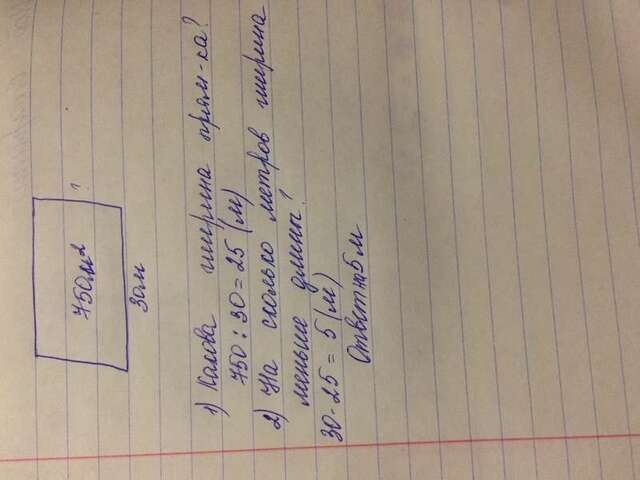 750м²
?
30м
1) Какова ширина прям-ка?
750 : 30 = 25 (м)
2) На сколько метров ширина
меньше длины?
30 - 25 = 5 (м)
Ответ на 5 м